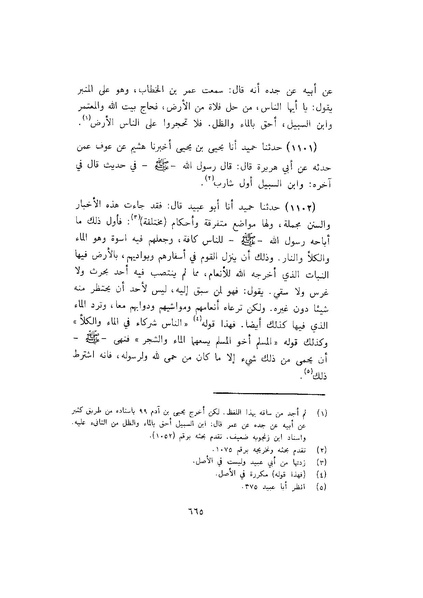 عن أبيه عن جده أنه قال: سمعت عمر بن الخطاب، وهو على المنبر
يقول: يا أيها الناس، من حل فلاة من الأرض، فحاج بيت الله والمعتمر
وابن السبيل، أحق بالماء والظل. فلا تحجروا على الناس الأرض(١).
(١١٠١) حدثنا حميد أنا يحيى بن يحيى أخبرنا هشيم عن عوف عمن
حدثه عن أبي هريرة قال: قال رسول الله -ﷺ- في حديث قال في
آخره: وابن السبيل أول شارب(٢).
(١١٠٢) حدثنا حميد أنا أبو عبيد قال: فقد جاءت هذه الأخبار
والسنن مجملة، ولها مواضع متفرقة وأحكام (مختلفة)(٣): فأول ذلك ما
أباحه رسول الله -ﷺ- للناس كافة، وجعلهم فيه أسوة وهو الماء
والكلأ والنار. وذلك أن ينزل القوم في أسفارهم وبواديهم، بالأرض فيها
النبات الذي أخرجه الله للأنعام، مما لم ينتصب فيه أحد بحرث ولا
غرس ولا سقي. يقول: فهو لمن سبق إليه، ليس لأحد أن يحتظر منه
شيئا دون غيره. ولكن ترعاه أنعامهم ومواشيهم ودوابهم معا، وترد الماء
الذي فيها كذلك أيضا. فهذا قوله(٤) «الناس شركاء في الماء والكلأ»
وكذلك قوله «المسلم أخو المسلم يسعهما الماء والشجر» فنهى -ﷺ-
أن يحمى من ذلك شيء إلا ما كان من حمى لله ولرسوله، فانه اشترط
ذلك(٥).
(١) لم أجد من ساقه بهذا اللفظ. لكن أخرج يحيى بن آدم ٩٩ باسناده من طريق كثير
عن أبيه عن جده عن عمر قال: ابن السبيل أحق بالماء والظل من التانىء عليه.
واسناد ابن زنجويه ضعيف. تقدم بحثه برقم (١٠٥٢).
(٢) تقدم بحثه وتخريجه برقم ١٠٧٥.
(٣) زدتها من أبي عبيد وليست في الأصل.
(٤) (فهذا قوله) مكررة في الأصل.
(٥) انظر أبا عبيد ٣٧٥.
٦٦٥